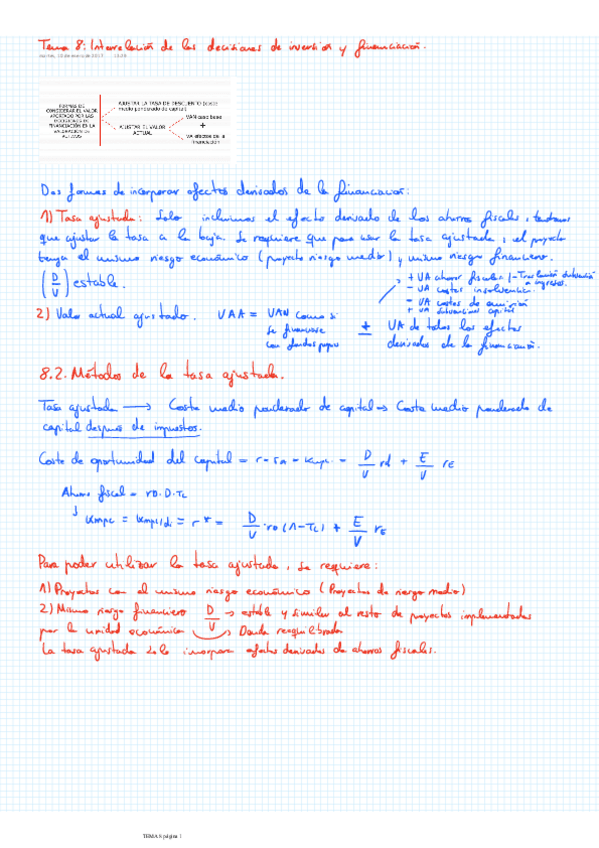 Tema 8: Interrelación de las decisiones de inversión y financiación.
martes, 10 de enero de 2017
FORMAS DE CONSIDERAR EL VALOR APORTADO POR LAS DECISIONES DE FINANCIACIÓN EN LA VALORACIÓN DE ACTIVOS
AJUSTAR LA TASA DE DESCUENTO
medio ponderado de capital
AJUSTAR EL VALOR ACTUAL
VAN caso base
+
VA efectos de la financiación
Dos formas de incorporar efectos derivados de la financiación:
1) Tasa ajustada: Solo incluimos el efecto derivado de los ahorros fiscales, tenemos
que ajustar la tasa a la baja. Se requiere que para usar la tasa ajustada, el proyecto
tenga el mismo riesgo económico (proyecto riesgo medio) y mismo riesgo financiero.
(D/V) estable.
+ VA ahorro fiscal
- VA costes insolvencia
- VA costes de emisión
+ VA subvenciones capital
2) Valor actual ajustado. VAA = VAN como si se financiase con fondos propios ± VA de todos los efectos derivados de la financiación.
8.2. Métodos de la tasa ajustada.
Tasa ajustada → Coste medio ponderado de capital → Coste medio ponderado de
capital después de impuestos.
Coste de oportunidad del capital = r = rA = Kmpc = D/V rd + E/V rE
Ahorro fiscal = rD.D.TC
↓ Kmpc = Kmpc/di = r* = D/V · rD (1-TC) + E/V rE
Para poder utilizar la tasa ajustada, se requiere:
1) Proyectos con el mismo riesgo económico (Proyectos de riesgo medio)
2) Mismo riesgo financiero D/V → estable y similar al resto de proyectos implementados
por la unidad económica → Deuda reequilibrada
La tasa ajustada solo incorpora efectos derivados de ahorros fiscales.
TEMA 8 página 1